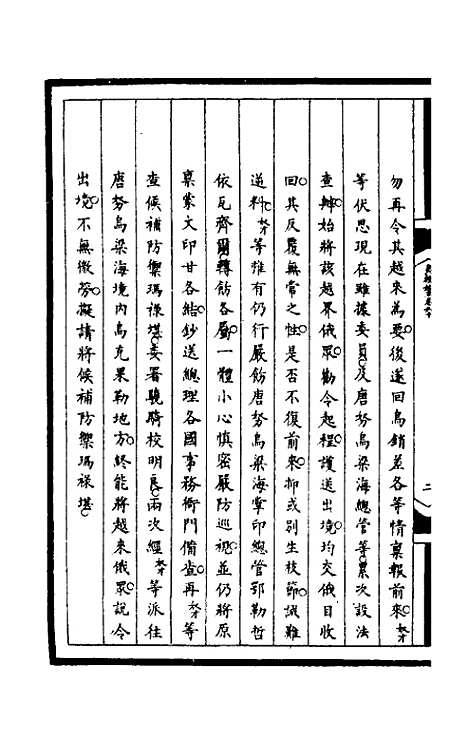 勿再令其越來為要後遂回烏銷並各等情稟報前來奴才
等伏思現在雖據委員及唐努烏梁海總管等累次設法
查辦始將該越界俄眾勸令起程護送出境均交俄目收
回其反覆無常之性是否不復前來抑或別生枝節誠難
逆料奴才等惟有仍行嚴飭唐努烏梁海掌印總管鄂勒哲
依瓦齊爾轉飭各屬一體小心慎密嚴防巡視並仍將原
稟蒙文印甘各結鈔送總理各國事務衙門備查再奴才等
查候補防禦瑪祿堪委署驍騎校明良兩次經奴才等派往
唐努烏梁海境內烏克果勒地方終能將越來俄眾說令
出境不無微勞擬請將候補防禦瑪祿堪
二